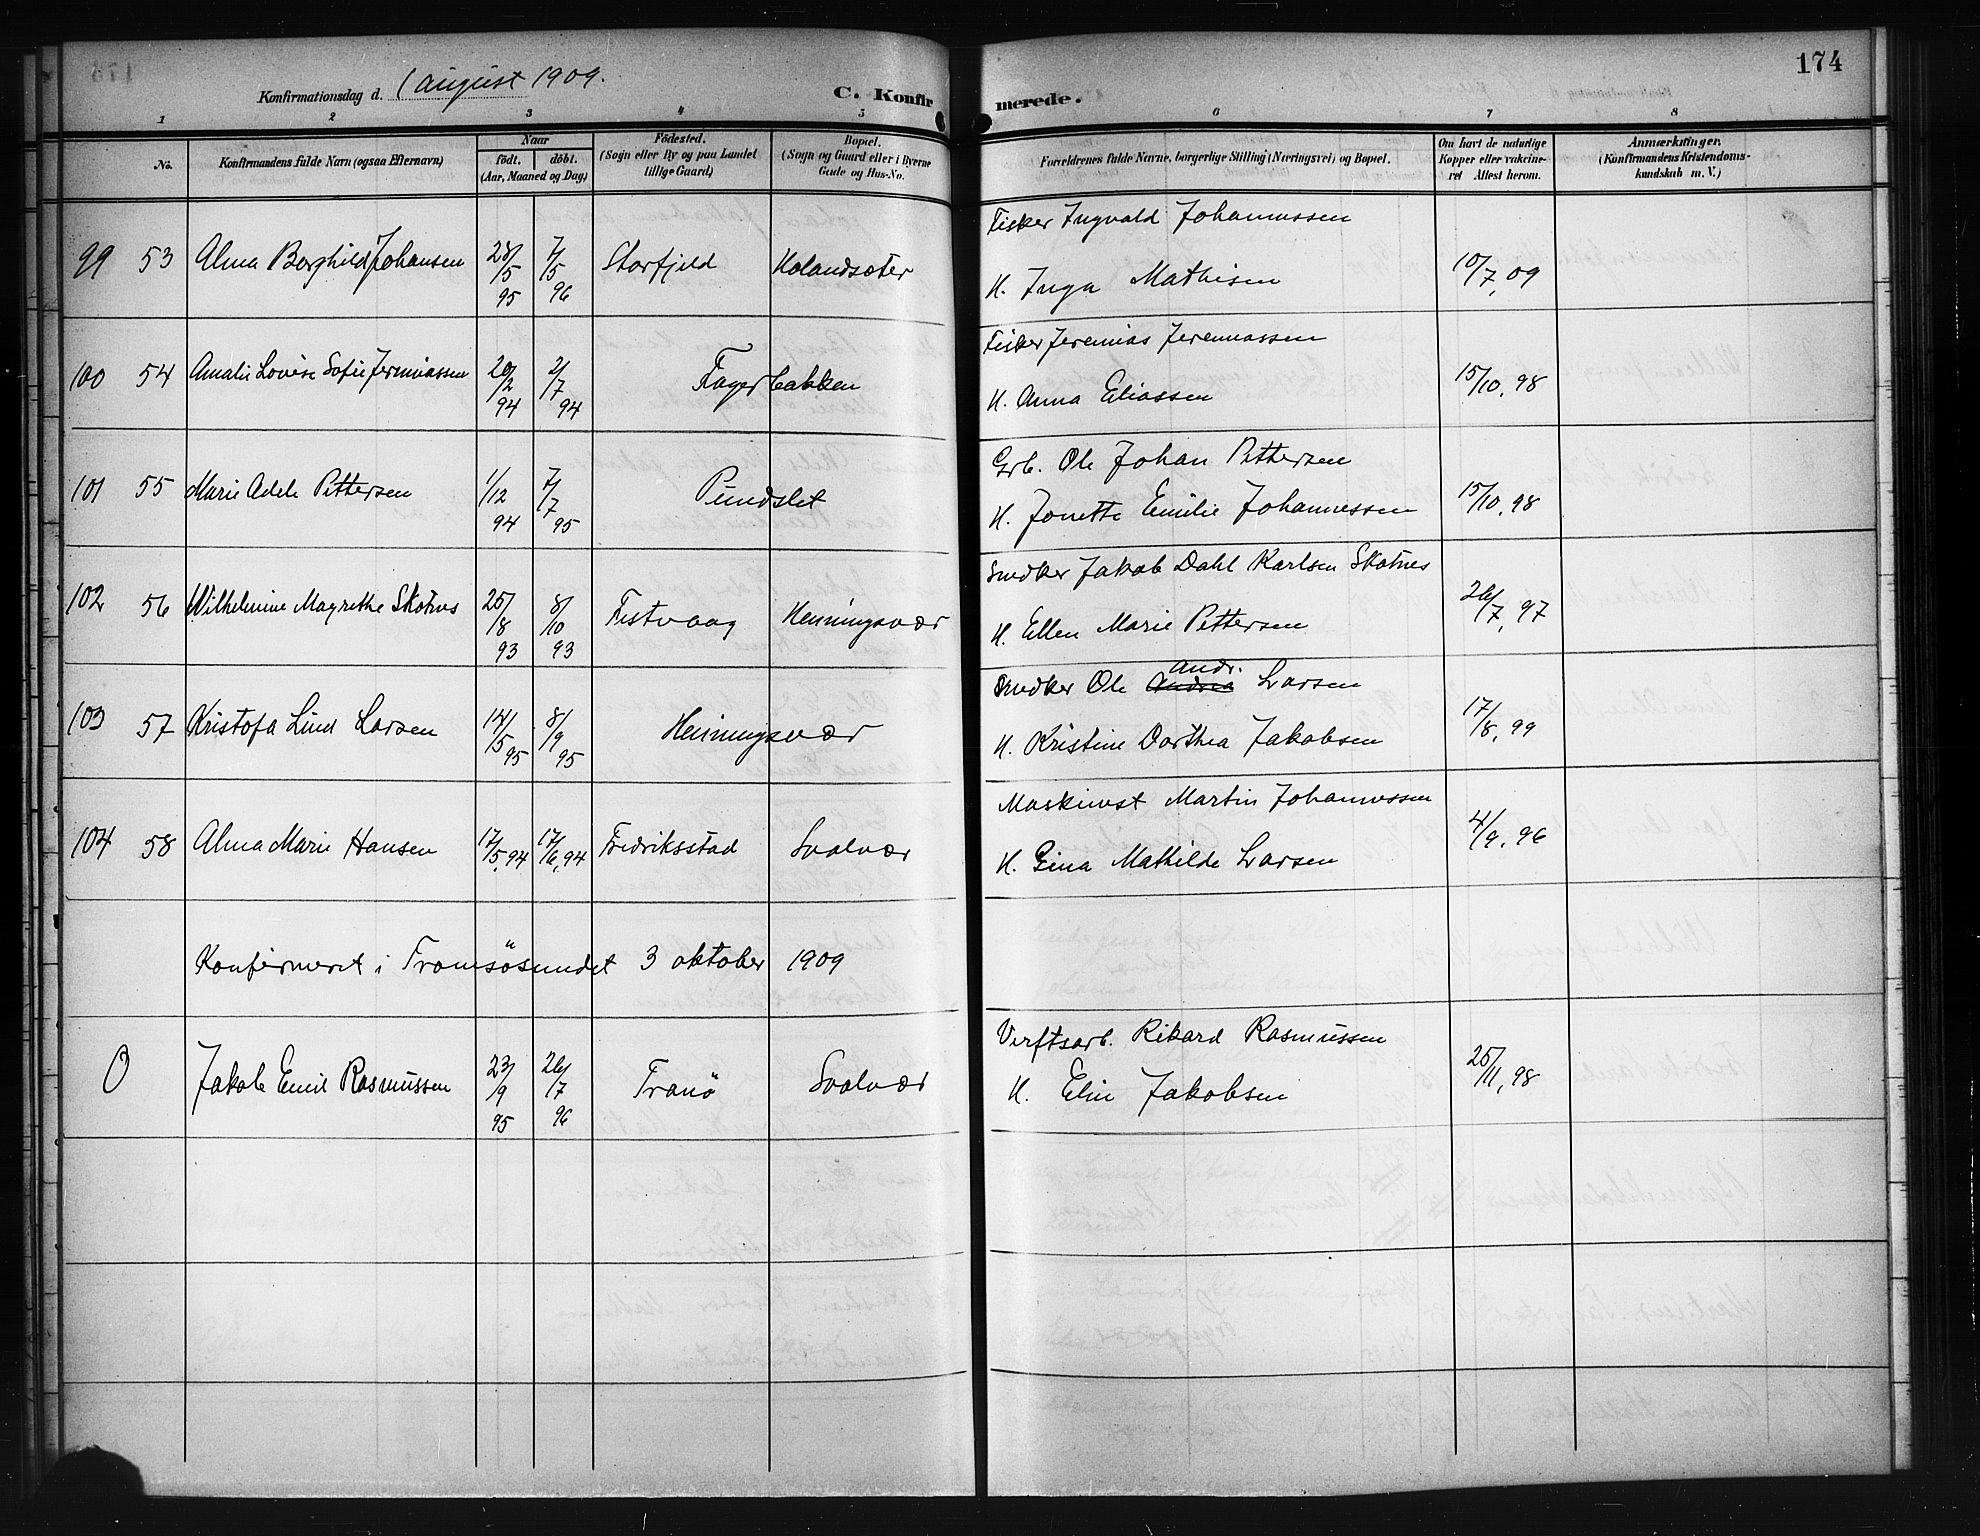 174
Konfirmationsdag d. 1 august 1909.
C. Konfir merede.
1 2 3 4 5 6 7 8
No.
Konfirmandens fulde Navn (ogsaa Efternavn)
Naar
födt. döbt.
(Aar, Maaned og Dag)
Födested.
(Sogn eller By og paa Landet
tillige Gaard)
Bopæl.
(Sogn og Gaard eller i Byerne
Gade og Hus-No.
Forældrenes fulde Navne, borgerlige Stilling (Næringsvei) og Bopæl.
Om havt de naturlige
Kopper eller vakcine-
ret Attest herom.
Anmærkninger.
(Konfirmandens Kristendoms-
kundskab m. V.)
Fisker Ingvald Johannessen
99 53 Alma Borghild Johansen 28/5 95 7/5 96 Storfjeld Kolandsæter
H. Inga Mathisen 10/7, 09
Fisker Jeremias Jeremiassen
100 54 Amalie Lovise Sofie Jermiassen 20/2 94 2/7 94 Fagerbakken
H. Anna Eliassen 15/10, 98
Grb. Ole Johan Pettersen
101 55 Marie Adele Pettersen 1/12 94 7/7 95 Pundslet
H. Jonette Emilie Johannessen 15/10, 98
Snedker Jakob Dahl Karlsen Skotnes
102 56 Wilhelmine Magrethe Skotnes 25/8 93 8/10 93 Festvaag Henningsvær
H. Ellen Marie Pettersen 26/7, 97
Snedker Ole Andrea Andr. Larsen
103 57 Kristofa Lind Larsen 14/5 95 8/9 95 Henningsvær
H. Kristine Dorthea Jakobsen 17/8, 99
Maskinist Martin Johannessen
104 58 Alma Marie Hansen 17/5, 94 17/6, 94 Fredriksstad Svolvær
H. Gina Mathilde Larsen 4/9, 96
Konfirmeret i Tromsösundet 3 oktober 1909
Verftsarb. Rikard Rasmussen
0 Jakob Emil Rasmussen 23/9 95 26/7 96 Tranö Svolvær
H. Elin Jakobsen 25/11, 98